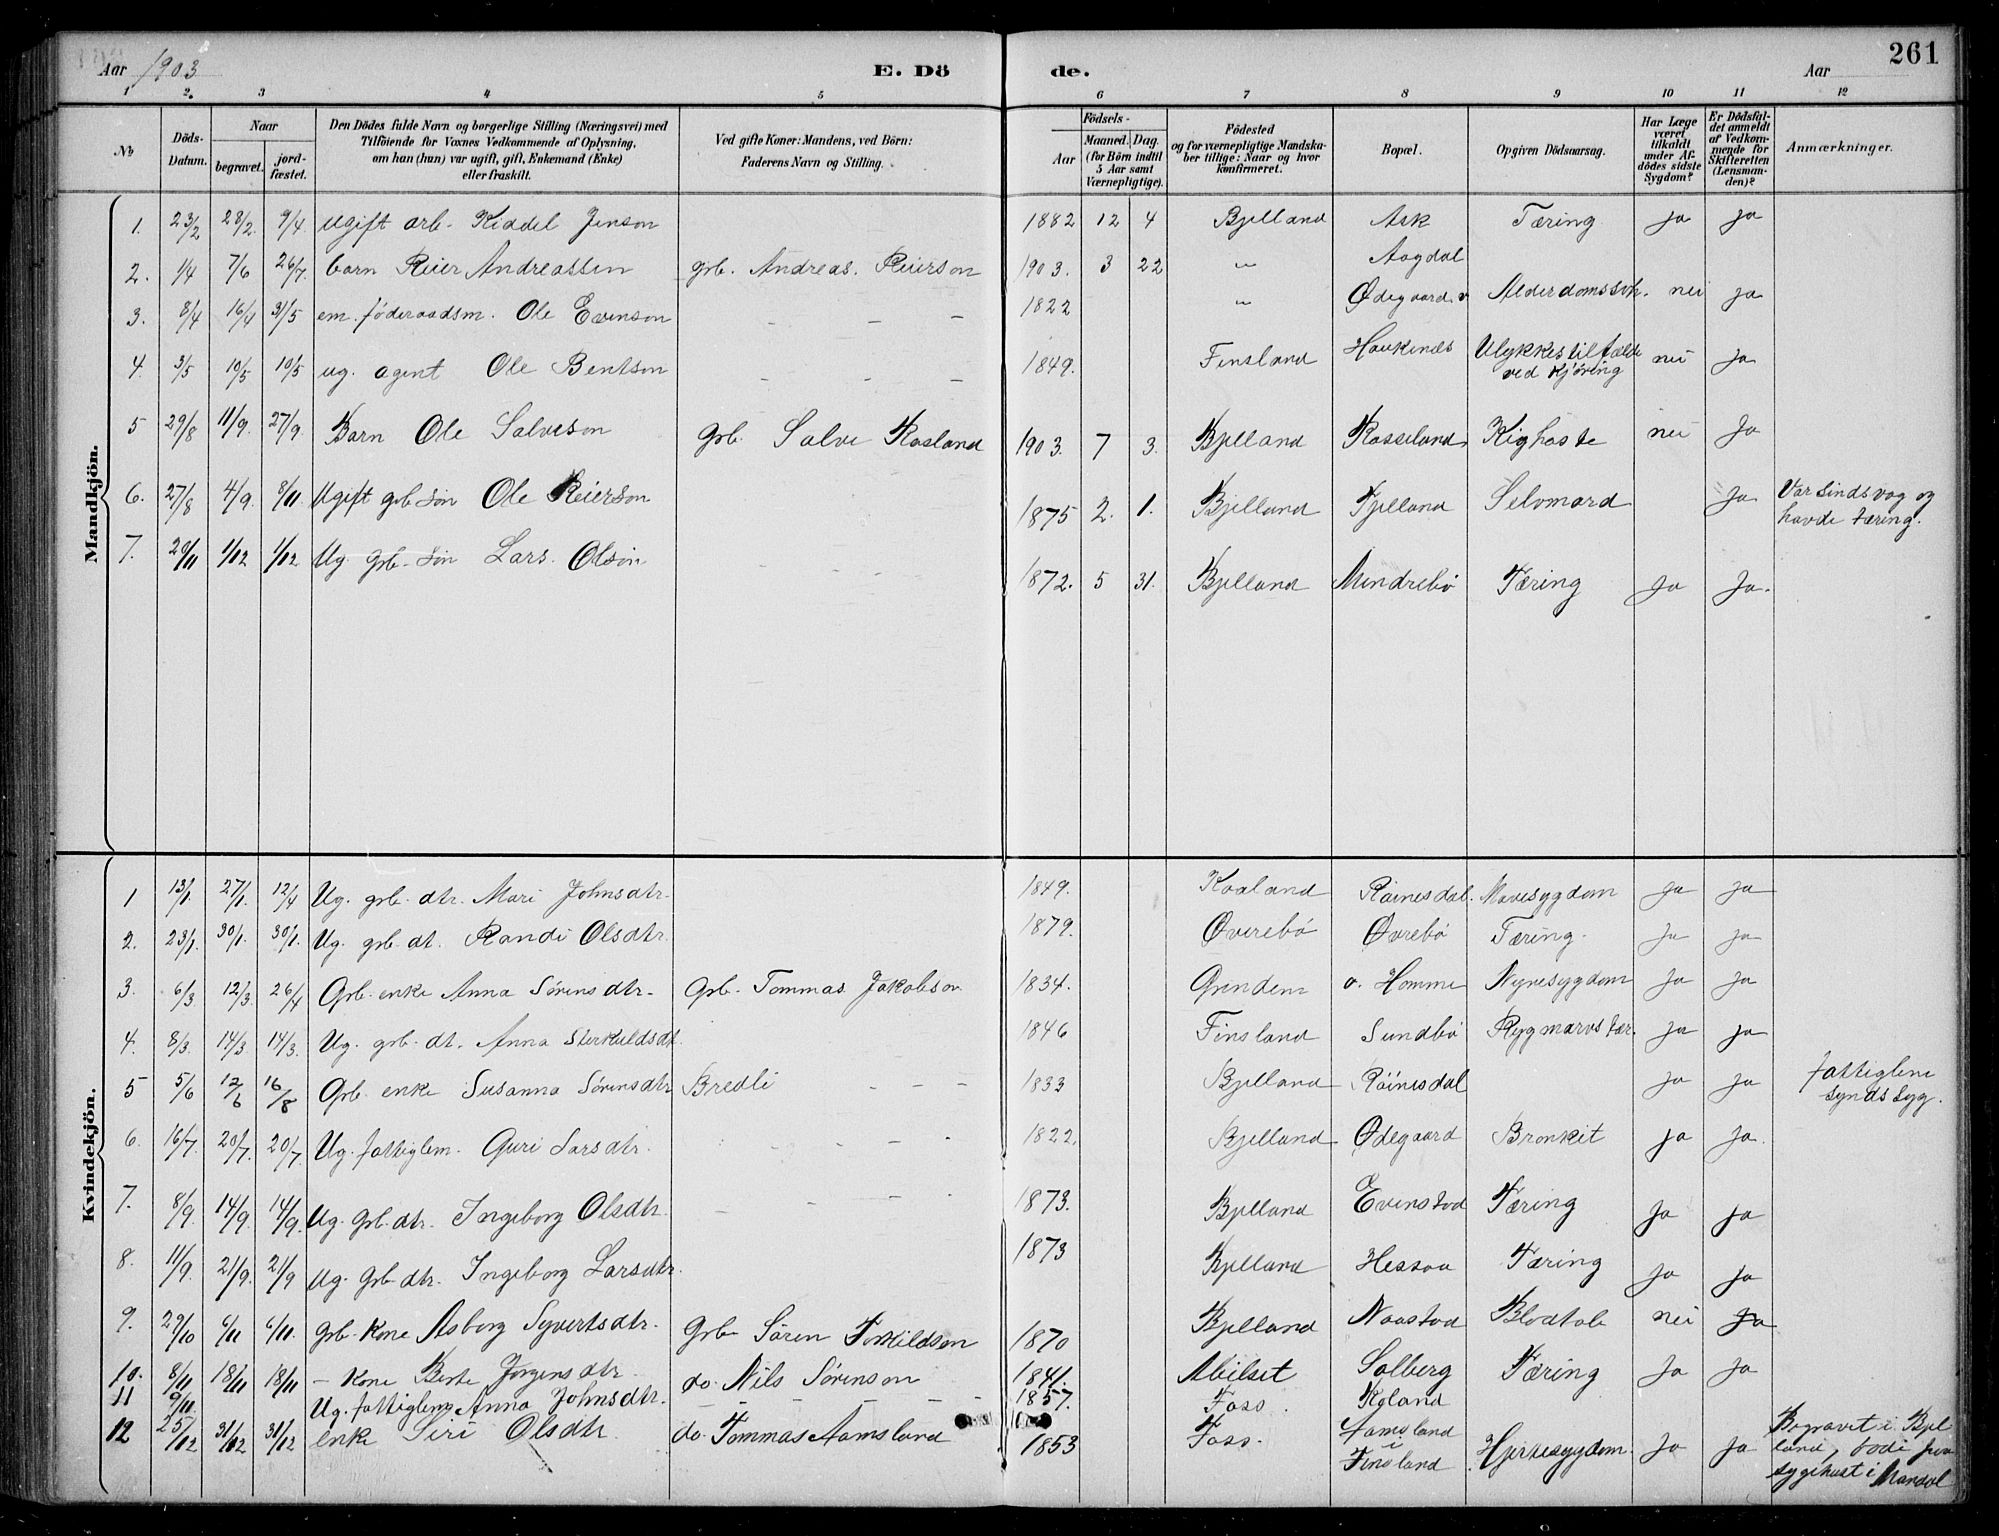 261
Aar 1903 E. Dö de. Aar
1 2. 3 4 5 6 7 8 9 10 11 12
No Döds-Datum. Naar begravet. jordfæstet. Den Dödes fulde Navn og borgerlige Stilling (Næringsvei) med Tilföiende for Voxnes Vedkommende af Oplysning, om han (hun) var ugift, gift, Enkemand (Enke) eller fraskilt. Ved gifte Koner: Mandens, ved Börn: Faderens Navn og Stilling. Födsels- Aar Maaned. Dag. (for Börn indtil 5 Aar samt Værnepligtige). Födested og for værnepligtige Mandskaber tillige: Naar og hvor konfirmeret. Bopæl. Opgiven Dödsaarsag. Har Læge været tilkaldt under Afdödes sidste Sygdom? Er Dödsfaldet anmeldt af Vedkommende for Skifteretten (Lensmanden)? Anmærkninger.
Mandkjön.
1. 23/2 28/2. 9/4 ugift arb. Kiddel Jenson 1882 12 4 Bjelland Ask Tæring ja ja
2. 1/4 7/6 26/7. barn Reier Andreassen grb. Andreas. Reierson 1903. 3 22 " Aagdal
3. 8/4 16/4 31/5 em. föderaadsm. Ole Evenson - - - 1822 " Ødegaard Alderdomssvk. nei ja
4. 3/5 10/5 10/5 ug. agent Ole Bentson - - - 1849. Finsland Haukenæs Ulykkestilfælde ved kjøring nei ja
5 29/8 11/9. 27/9. Barn Ole Salveson Grb. Salve Rosland 1903. 7 3. Bjelland Rosseland. Kighoste nei Ja
6. 27/8 4/9. 8/11. Ugift grb søn Ole Reierson 1875 2. 1. Bjelland Fjelland Selvmord Ja Var sindsvag og havde tæring.
7. 20/11 1/12 1/12 Ug. grb. søn Lars. Olson 1872. 5 31. Bjelland Mindrebø Tæring Ja Ja.
Kvindekjön.
1 13/1. 27/1. 12/4 Ug. grb. dtr. Mari Johnsdtr. 1849. Kaaland Røinesdal. Mavesygdom ja ja
2. 23/1. 30/1. 30/1. Ug. grb. dt. Randi Olsdtr. 1879. Øverebø Øvrebø Tæring. Ja ja
3. 6/3 12/3. 26/4 Grb. enke Anna Sørensdtr. Grb. Tommas Jakobson 1834. Grindem o. Homme Nyresygdom Ja Ja
4. 8/3. 14/3 14/3. Ug. grb. dt. Anna Sterkuldsdt. 1846 Finsland Sundbø Rygmarvstær. Ja Ja
5 5/6 12/6 16/8 Grb. enke Susanna Sørensdtr Bredli - - - 1833 Bjelland Røinesdal ja Ja fattiglem syndssyg.
6. 16/7. 20/7. 20/7. Ug. fattiglem. Guri Larsdtr. 1822. Bjelland Ødegaard Bronkit ja Ja.
7. 8/9. 14/9. 14/9. Ug. Grb. dtr. Ingeborg Olsdtr. 1873. Bjelland Evenstad Tæring Ja Ja
8. 11/9. 21/9. 21/9 Ug. Grb. dtr. Ingeborg Larsdtr. 1873 Bjelland Hessaa Tæring Ja Ja
9. 29/10 6/11 6/11. Grb. Kone Asborg Syvertsdtr. Grb Søren Torkildson 1870 Bjelland Naastad Blodtab nei Ja
10. 8/11 18/11 18/11 - Kone Berte Jørgensdtr. do. Nils Sørenson 1841. Abilset Solberg Tæring Ja Ja
11 9/11. Ug. fattiglem Anna Johnsdtr. - - - 1857. Foss. Roland
12 25/12 31/12 31/12 enke Siri Olsdtr do. Tommas Aamsland 1853 Foss. Aamsland i Finsland Hjertesygdom. Ja Ja Begravet i Bjelland, død i sygehust i Mandal